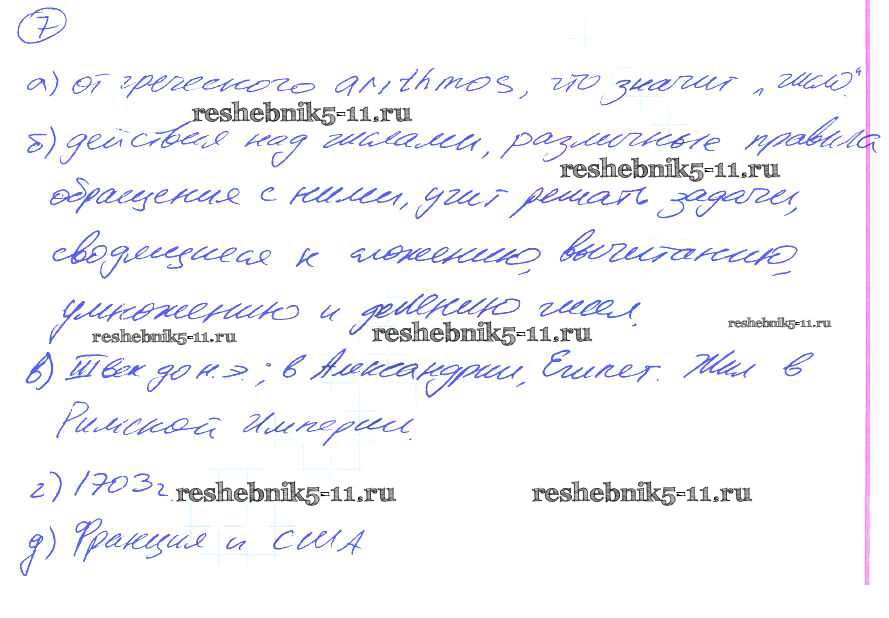 7
а) от греческого arithmos, что значит „число“.
reshebnik5-11.ru
б) действия над числами, различные правила
reshebnik5-11.ru
обращения с ними, учит решать задачи,
сводящиеся к сложению, вычитанию,
умножению и делению чисел.
reshebnik5-11.ru reshebnik5-11.ru reshebnik5-11.ru
в) III век до н.э.; в Александрии, Египет. Жил в
Римской Империи.
г) 1703г. reshebnik5-11.ru reshebnik5-11.ru
д) Франция и США